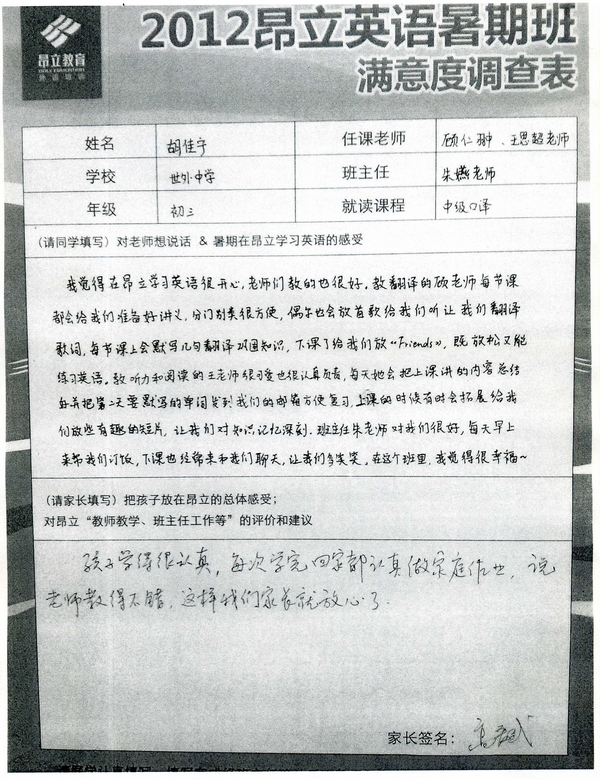 昂立教育
外语培训
2012昂立英语暑期班
满意度调查表
姓名 胡佳宁 任课老师 顾仁翀、王思超老师
学校 世外中学 班主任 朱燕老师
年级 初三 就读课程 中级口译
(请同学填写) 对老师想说话 & 暑期在昂立学习英语的感受
我觉得在昂立学习英语很开心,老师们教的也很好。教翻译的顾老师每节课
都会给我们准备好讲义,分门别类很方便,偶尔也会放首歌给我们听让我们翻译
歌词,每节课上会默写几句翻译巩固知识,下课了给我们放《Friends》,既放松又能
练习英语。教听力和阅读的王老师很可爱也很认真负责,每天她会把上课讲的内容总结
好并把第二天要默写的单词发到我们的邮箱方便复习,上课的时候有时会拓展给我
们放些有趣的短片,让我们对知识记忆深刻.班主任朱老师对我们很好,每天早上
来帮我们订饭,下课也经常来和我们聊天,让我们多笑笑。在这个班里,我觉得很幸福~
(请家长填写) 把孩子放在昂立的总体感受;
对昂立“教师教学、班主任工作等”的评价和建议
孩子学得很认真,每次学完回家都认真做家庭作业,说
老师教得不错,这样我们家长就放心了.
家长签名: